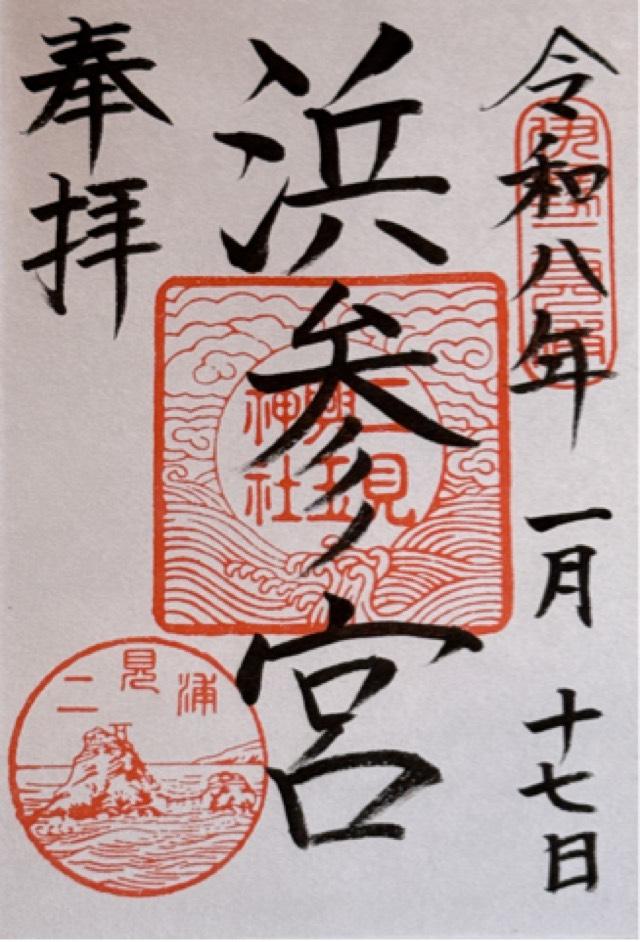 令和八年 一月 十七日
伊勢二見浦
浜参宮
二見
興玉
神社
奉拝
二見浦